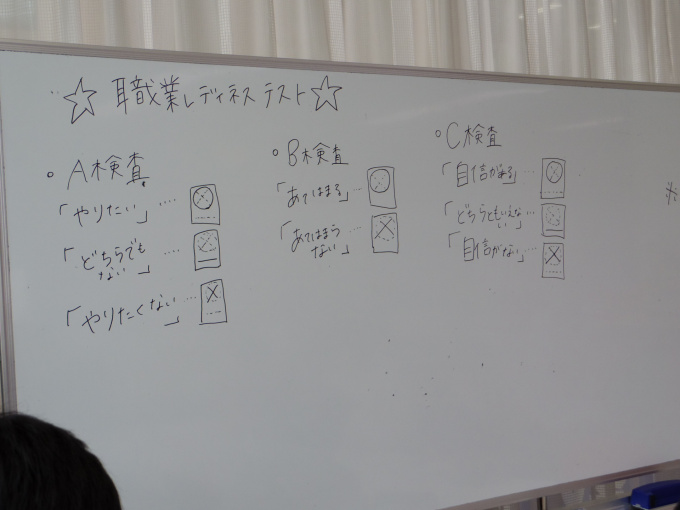 ☆職業レディネステスト☆
・A検査
「やりたい」‥‥
「どちらでも
ない」‥‥
「やりたくない」‥‥
・B検査
「あてはまる」‥
「あてはまら
ない」‥‥
・C検査
「自信がある」‥‥
「どちらともいえな
い」‥‥
「自信がない」‥‥